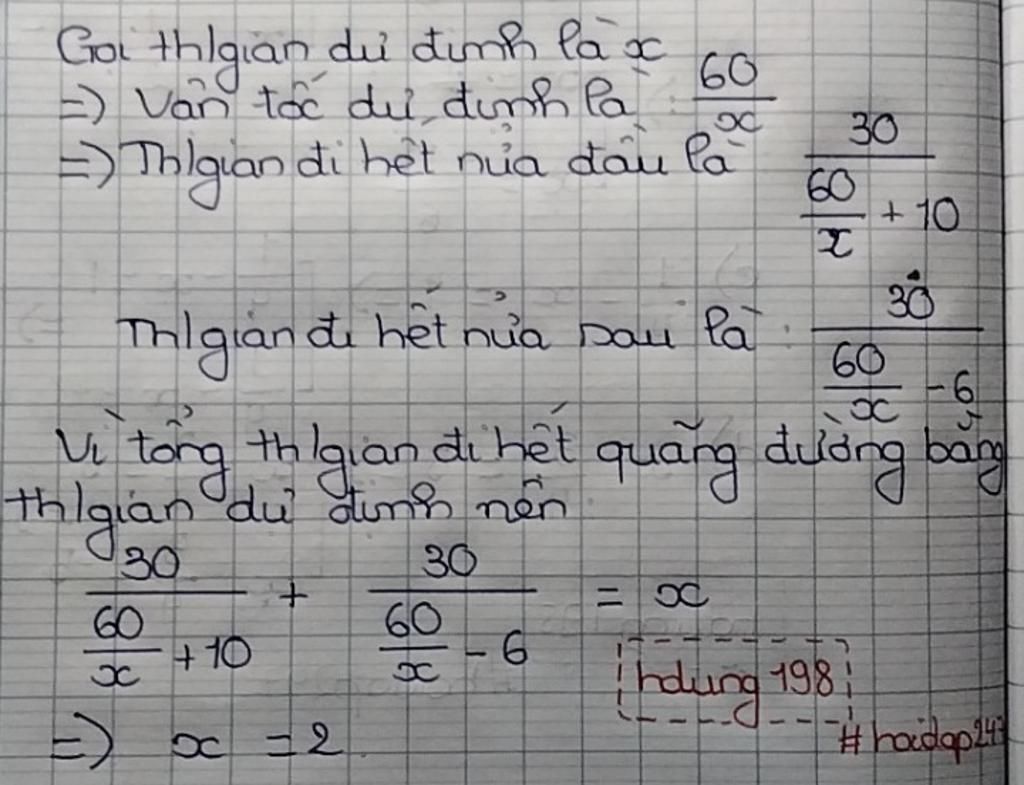 Gọi th/gian dự định là x
=) Vận tốc dự định là : 60/x
=) Th/gian đi hết nửa đầu là 30/(60/x + 10)
Th/gian đi hết nửa sau là : 30/(60/x - 6)
Vì tổng th/gian đi hết quãng đường bằng
th/gian dự định nên
30/(60/x + 10) + 30/(60/x - 6) = x
=) x = 2
hdung 198
#hoidap247